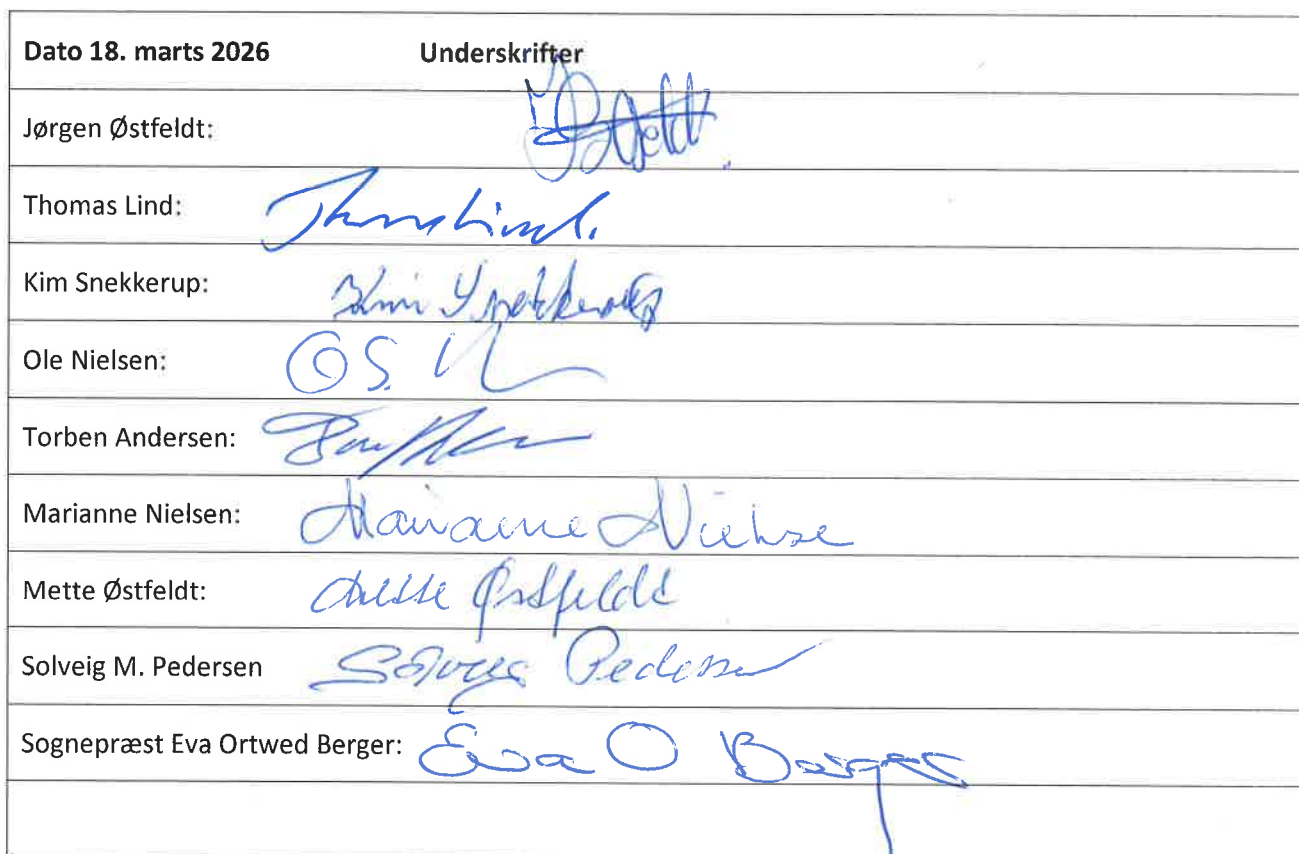 Dato 18. marts 2026 Underskrifter
Jørgen Østfeldt:
Thomas Lind: Thomas Lind.
Kim Snekkerup: Kim Snekkerup
Ole Nielsen: O S. N
Torben Andersen:
Marianne Nielsen: Marianne Nielsen
Mette Østfeldt: Mette Østfeldt
Solveig M. Pedersen Solveig Pedersen
Sognepræst Eva Ortwed Berger: Eva O Berger